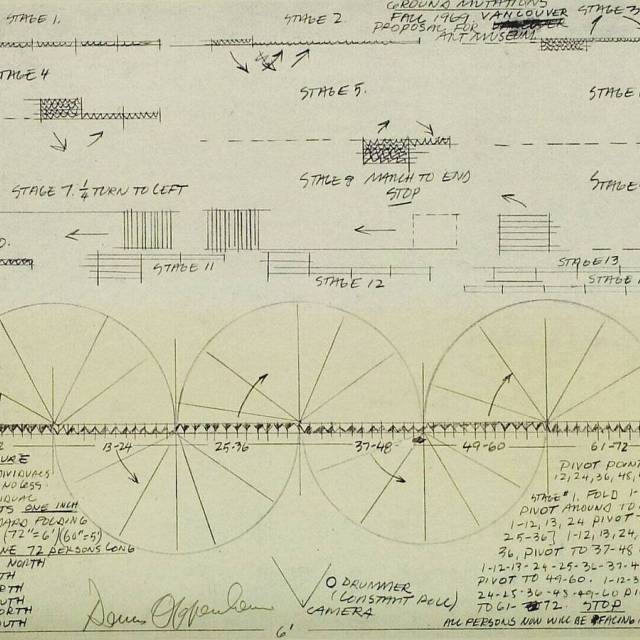 STAGE 1.
STAGE 2
GROUND MUTATIONS
FALL 1969, VANCOUVER
PROPOSAL FOR
ART MUSEUM
STAGE 3
STAGE 4
STAGE 5.
STAGE
STAGE 7. 1/4 TURN TO LEFT
STAGE 9 MARCH TO END
STOP
STAGE
STAGE 11
STAGE 12
STAGE 13
STAGE
13-24
25-36
37-48
49-60
61-72
URE
DIVIDUALS
IDUAL
TS ONE INCH
WARD FOLDING
(72"=6')(60"=5')
NE 72 PERSONS LONG
NORTH
TH
RTH
UTH
ORTH
SOUTH
Dennis Oppenheim
DRUMMER
(CONSTANT ROLL)
CAMERA
6'
PIVOT POINT
12, 24, 36, 48,
STAGE #1. FOLD 1-
PIVOT AROUND TO
1-12, 13, 24 PIVOT
25-36] 1-12, 13, 24
36, PIVOT TO 37-48
1-12-13-24-25-36-37-4
PIVOT TO 49-60. 1-12-
24-25-36-48-49-60 PI
TO 61-72. STOP
ALL PERSONS NOW WILL BE FACING